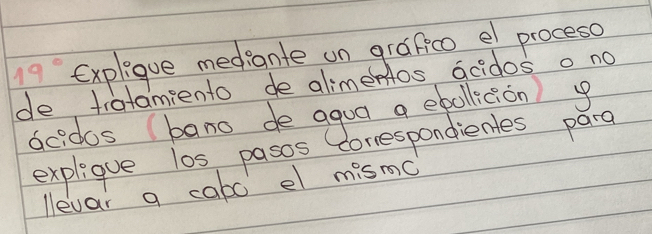 19° Explique mediante un gráfico el proceso
de tratamiento de alimentos ácidos o no
ácidos (bano de agua a ebollición) y
explique los pasos correspondientes para
llevar a cabo el mismo